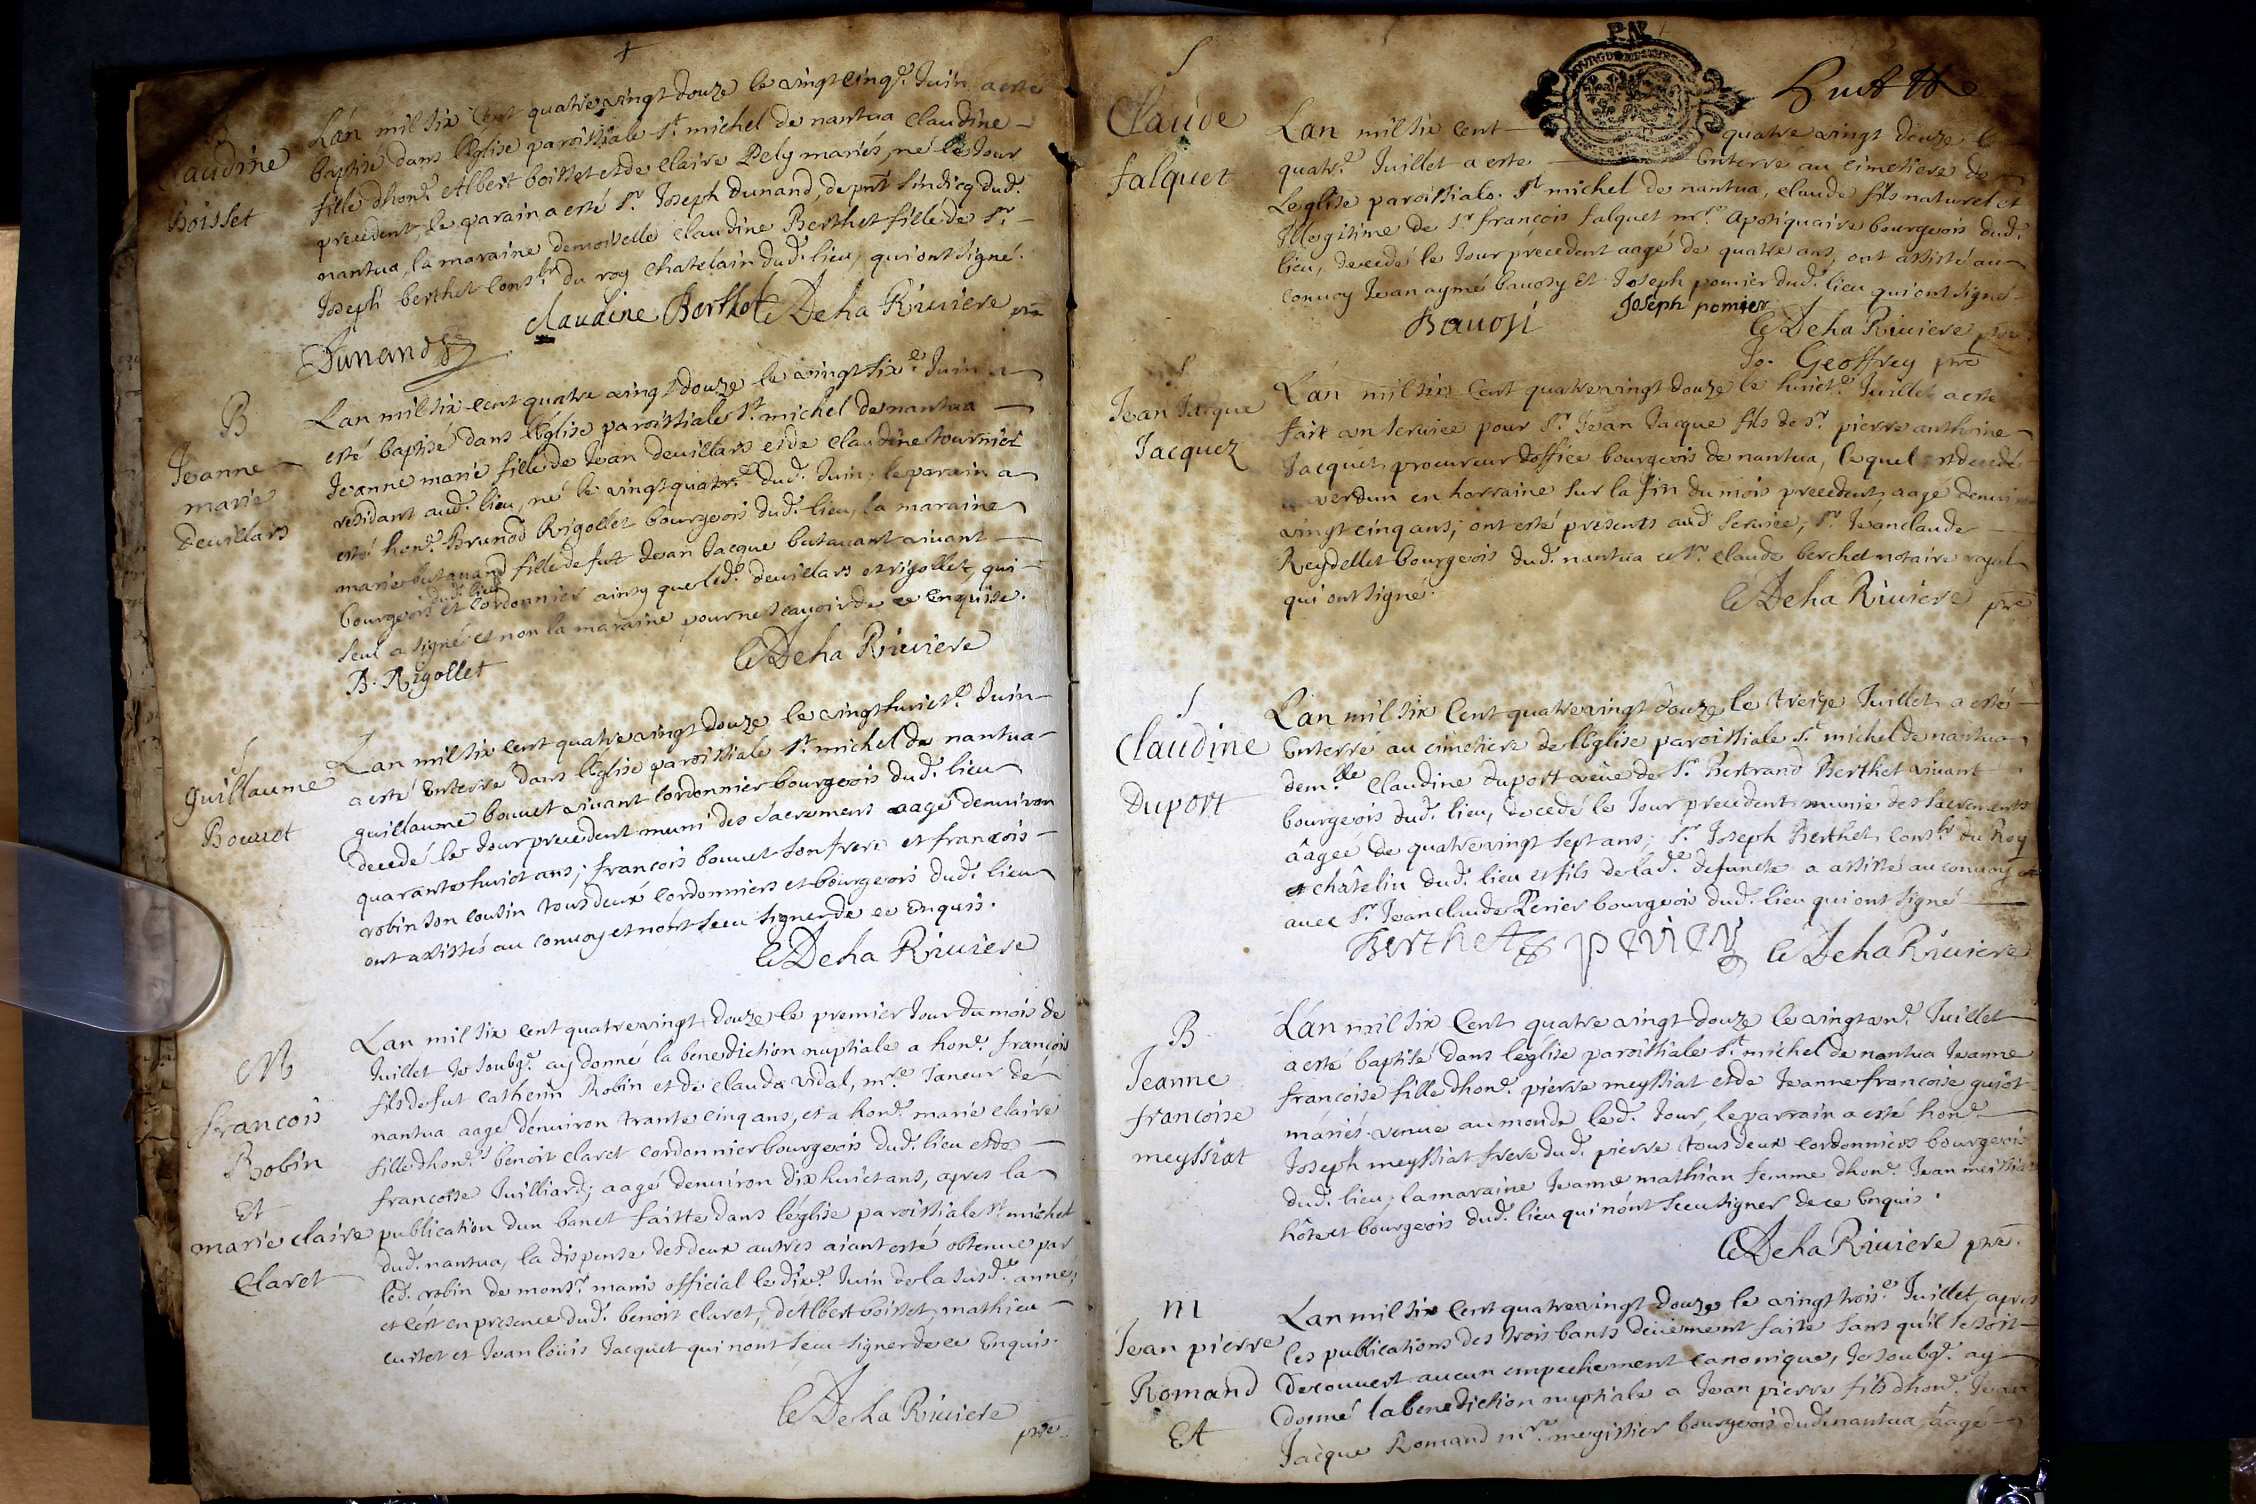 B
Claudine
Boisset
Lan mil six Cent quatre vingt douze le vingt cinq.e Juin a esté
baptisé dans lEglise paroissiale S.t michel de nantua Claudine
fille dhon.e Albert boisset et de Claire Pely mariés, né le Jour
precedent, le parain a esté S.r Joseph Dunand, de pnt sindicq dud.
nantua, la maraine demoiselle Claudine Berthet fille de S.r
Joseph berthet Cons.er du roy chatelain dud. lieu, qui ont signé.
Claudine Berthet C DehaRiviere pre
Dunand
B
Jeanne
marie
devillars
Lan mil six cent quatre vingt douze le vingt six.e Juin a
esté baptisé dans lEglise paroissiale S.t michel de nantua
Jeanne marie fille de Jean devillars et de Claudine tournier
residant aud. lieu, né le vingt quatr.e dud. Juin; le parain a
esté hon.e Brunod Rigollet bourgeois dud. lieu, la maraine
marie butavand fille de fut Jean Jacque butavant vivant
bourgeois dud. lieu et Cordonnier ainsy que led. devillars et rigollet, qui
seul a signé et non la maraine pour ne scavoir de ce Enquise.
B. Rigollet C DehaRiviere
S
guillaume
Bouvet
Lan mil six cent quatre vingt douze le vingt huict.e Juin
a esté Enterré dans lEglise paroissiale S.t michel de nantua
guillaume bouvet vivant Cordonnier bourgeois dud. lieu
decedé le Jour precedent muni des sacremens aagé denviron
quarante huict ans; françois bouvet son frere et françois
robin son cousin tous deux Cordonniers et bourgeois dud. lieu
ont assistés au convoy et nont sceu signer de ce Enquis.
C DehaRiviere
M
françois
Robin
Et
marie claire
Claret
Lan mil six cent quatre vingt douze le premier Jour du mois de
Juillet Je soubg.e ay donné la benediction nuptiale a hon.e françois
fils de fut Catherin Robin et de Clauda vidal, m.re Taneur de
nantua aagé denviron trante cinq ans, et a hon.e marie claire
fille dhon.e benoit Claret Cordonnier bourgeois dud. lieu et de
francoise Juilliard; aagé denviron dix huict ans, apres la
publication dun banct faitte dans léglise paroissiale S.t michel
dud. nantua, la dispense des deux autres aiant esté obtenue par
led. robin de mons.r manis official le dix.e Juin de la susd.e anne;
et cest en presence dud. benoit Claret, dAlbert boisset, mathieu
cuitet et Jean loüis Jacquet qui nont sceu signer de ce Enquis.
C DehaRiviere
pre
S
Claude
falquet
Lan mil six Cent quatre vingt douze le
quatr.e Juillet a esté Enterré au Cimetiere de
Leglise paroissiale S.t michel de nantua, Claude fils naturel et
Illegitime de S.r françois falquet m.re Apotiquaire bourgeois dud.
lieu, decedé le Jour précedent aagé de quatre ans, ont assisté au
convoy Jean aymé bavozy Et Joseph pomier dud. lieu qui ont signé
Joseph pomier
Bavosi C DehaRiviere pre
Jo. Geoffrey pre
S
Jean Jacque
Jacquez
Lan mil six Cent quatre vingt douze le huict.e Juillet a esté
fait un service pour S.r Jean Jacque fils de S.r pierre anthoine
Jacquet procureur doffice bourgeois de nantua, lequel est decedé
a verdun en Lorraine sur la fin du mois precedent, aagé denviron
vingt cinq ans; ont esté presents aud. service, S.r Jean claude
Reydellet bourgeois dud. nantua et S.r Claude berchet notaire royal
qui ont signé.
C DehaRiviere pre
S
Claudine
Duport
Lan mil six Cent quatre vingt douze le treize Juillet a esté
Enterré au cimetiere de lEglise paroissiale S.t michel de nantua
dem.lle Claudine duport veüe de S.r Bertrand Berthet vivant
bourgeois dud. lieu, decedé le Jour precedent munie des sacrements
aagée de quatre vingt sept ans; S.r Joseph Berthet Cons.er du Roy
et châtelin dud. lieu et fils de lad.e defuncte a assisté au convoy et
avec S.r Jean claude Perier bourgeois dud. lieu qui ont signé
Berthet perier C DehaRiviere
B
Jeanne
francoise
meyssiat
Lan mil six Cent quatre vingt douze le vingt un.e Juillet
a esté baptisé dans leglise paroissiale S.t michel de nantua Jeanne
francoise fille dhon.e pierre meyssiat et de Jeanne francoise guiot
mariés venue au monde led. Jour, le parrain a esté hon.e
Joseph meyssiat frere dud. pierre tous deux cordonniers bourgeois
dud. lieu; la maraine Jeanne mathian femme dhon.e Jean meissiat
hôte et bourgeois dud. lieu qui nont sceu signer de ce Enquis.
C DehaRiviere pre.
m
Jean pierre
Romand
Et
Lan mil six Cent quatre vingt douze le vingt trois.e Juillet apres
les publications des trois bants deüement faite sans quil se soit
decouvert aucun empechement canonique, Je soubg.e ay
donné la benediction nuptiale a Jean pierre fils dhon.e Jean
Jacque Romand m.re megissier bourgeois dud. nantua aagé